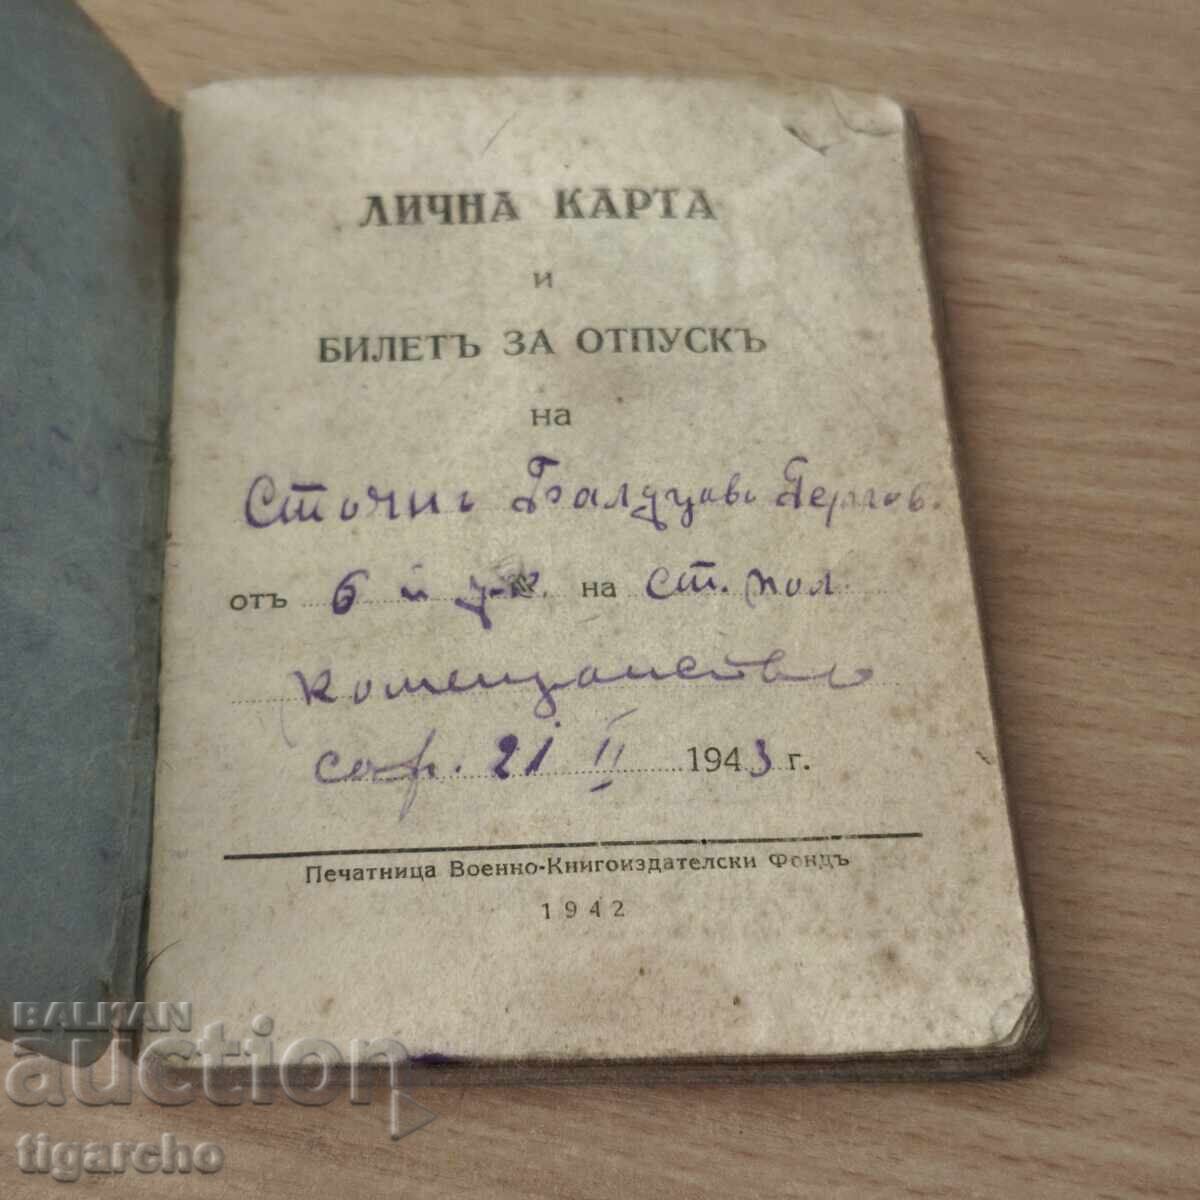 ЛИЧНА КАРТА
и
БИЛЕТЪ ЗА ОТПУСКЪ
на
отъ 6 на ст. пол.
комендантство
соф. 21 II 1943 г.
Печатница Военно-Книгоиздателски Фондъ
1942
BALKAN
auction
tigarcho